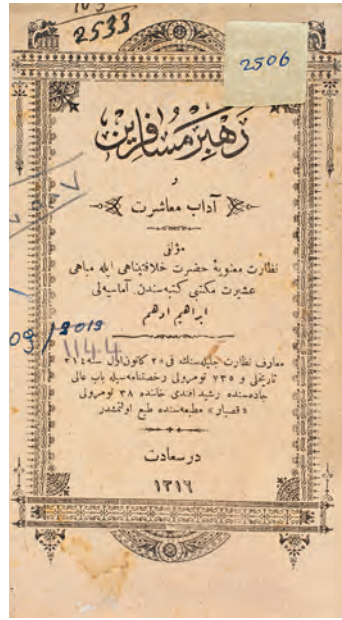 2533
2506
رهبر مسافرین
و
آداب معاشرت
مؤلفی
نظارت معنویهٔ حضرت خلافتپناهی ایله مباهی
عشیرت مکتبی کتبه سندن آماسیه لی
ابراهیم ادهم
1144
معارف نظارت جلیله سنك فی ۲۰ کانون اول سنه
تاریخلی و ۷۳۵ نومرولی رخصتنامه سیله باب عالی
جاده سنده رشید افندی خاننده ۳۸ نومرولی
« قصبار » مطبعه سنده طبع اولنمشدر
در سعادت
۱۳۱۶